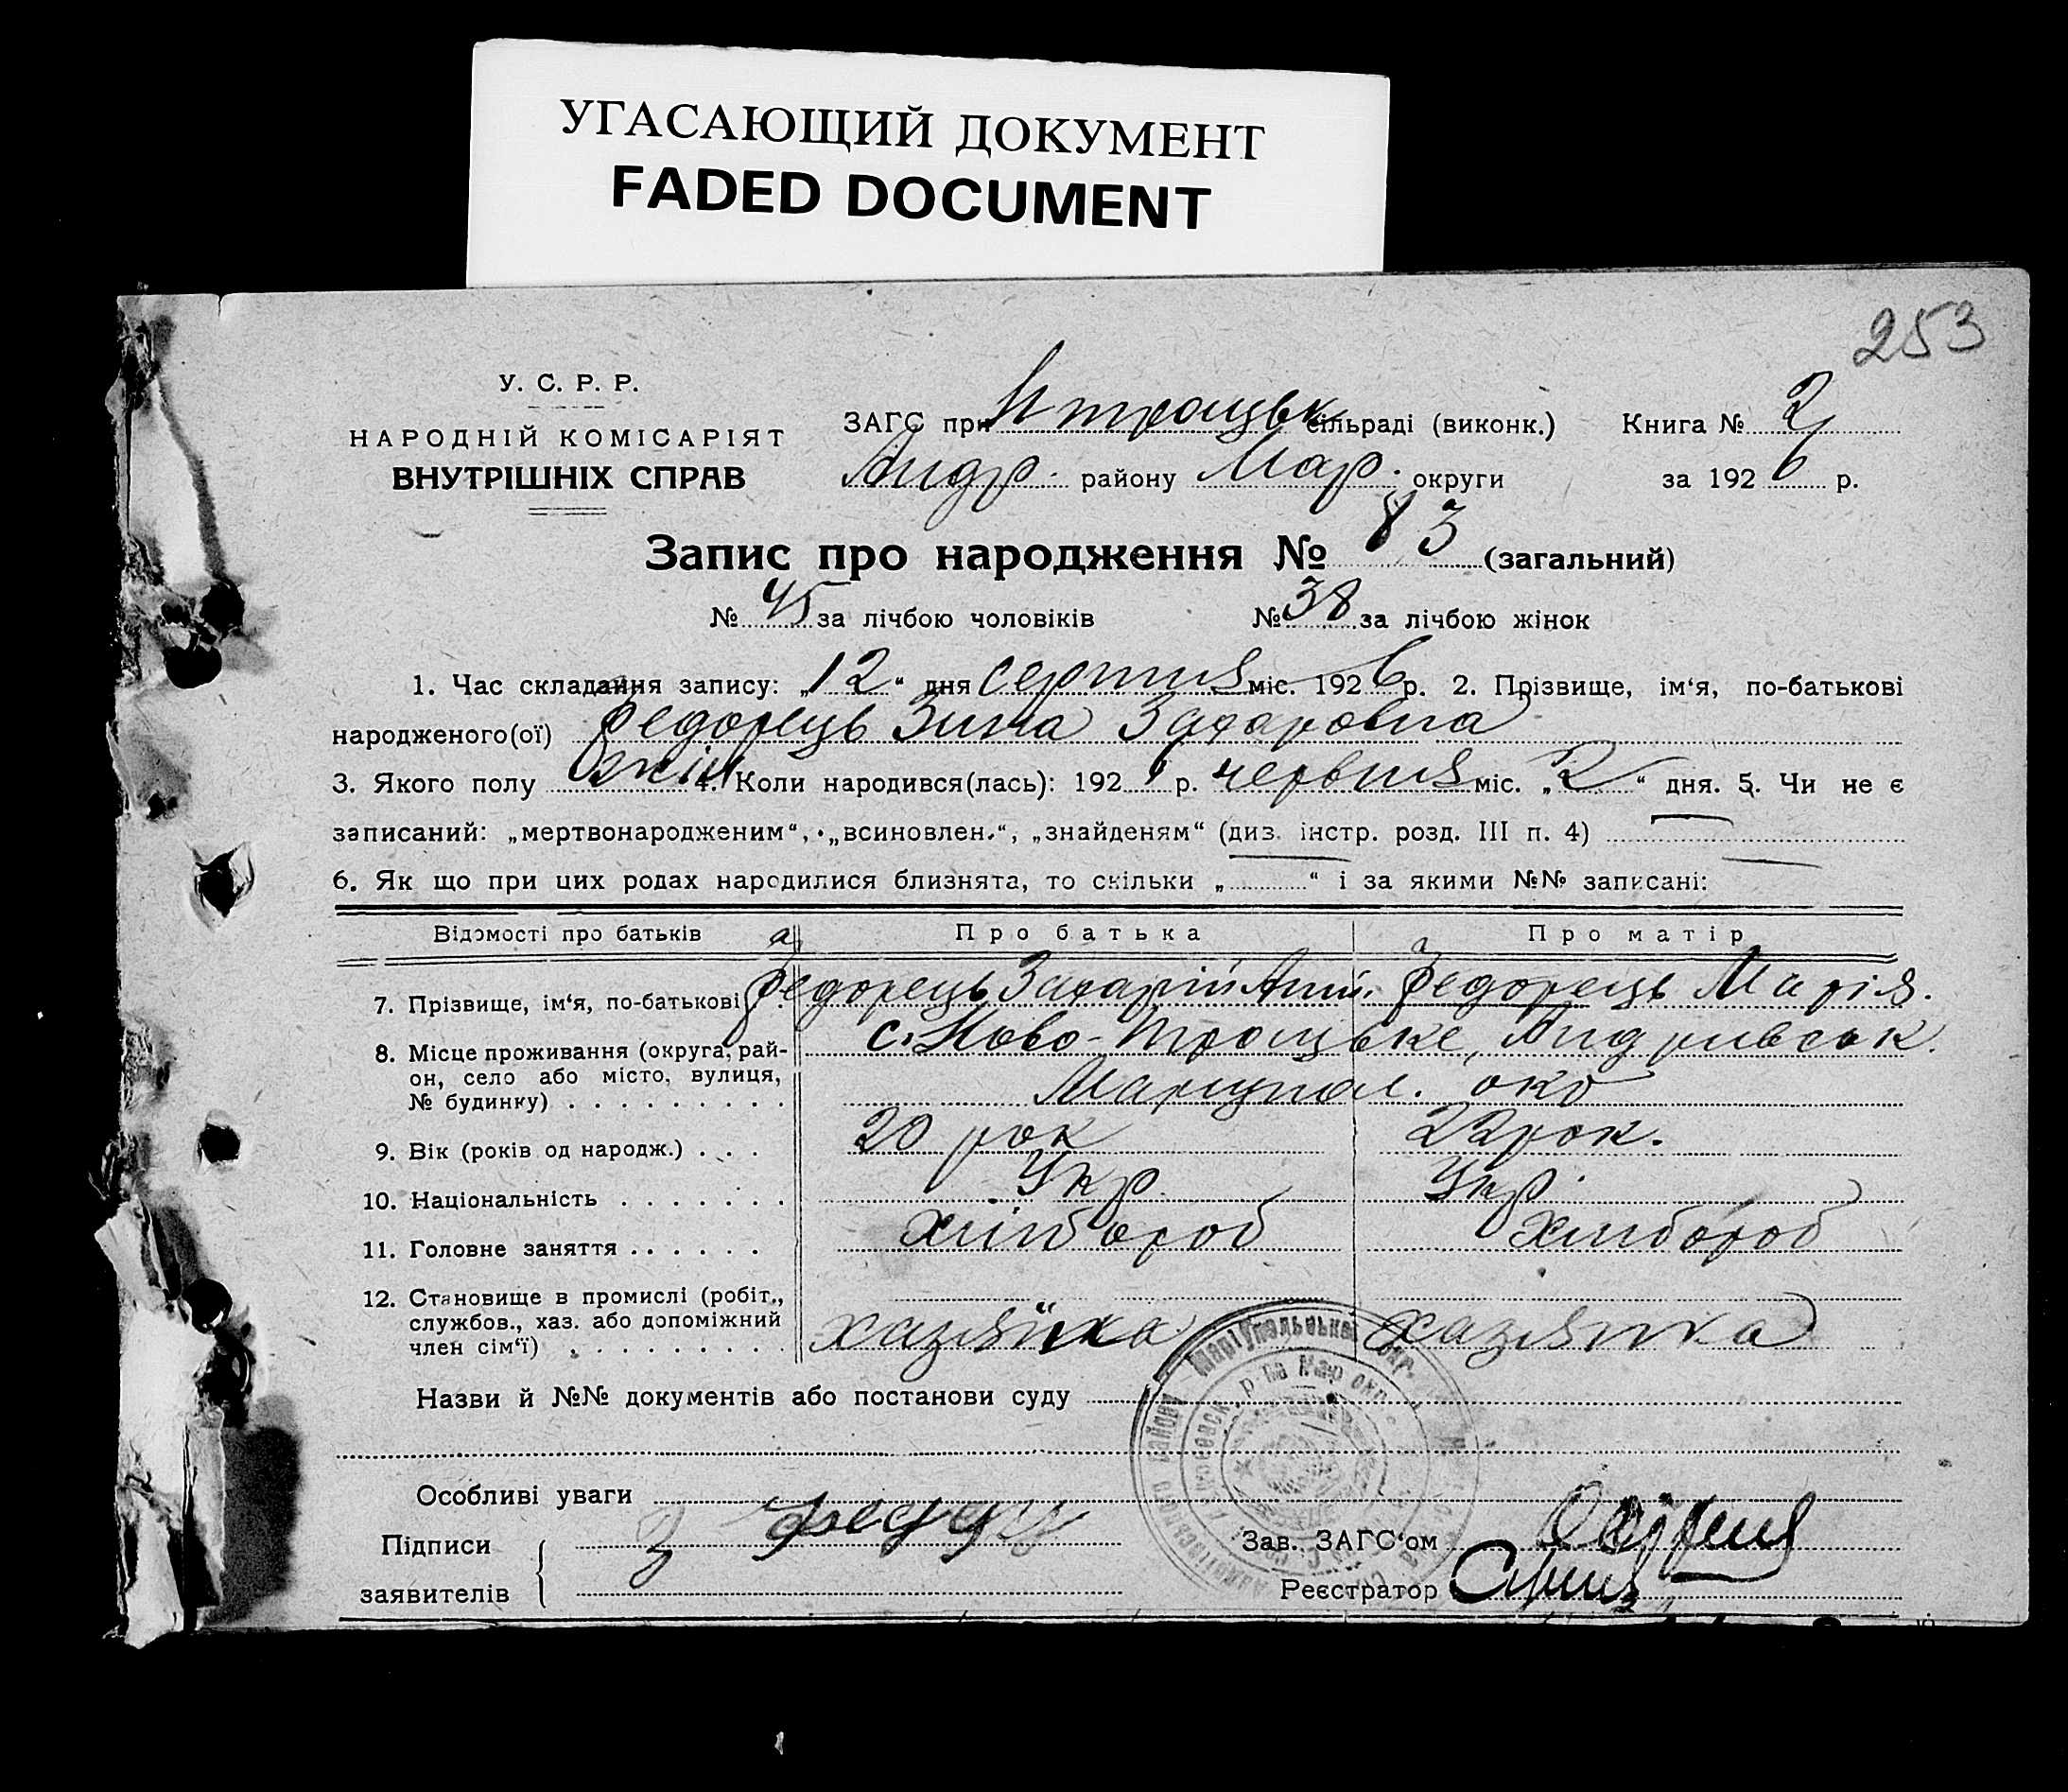 УГАСАЮЩИЙ ДОКУМЕНТ
FADED DOCUMENT
253
У. С. Р. Р.
НАРОДНІЙ КОМІСАРІЯТ
ВНУТРІШНІХ СПРАВ
ЗАГС при Н Троцьк сільраді (виконк.)
Андр. району Мар. округи
Книга № 2
за 1926 р.
Запис про народження № 83 (загальний)
№ 45 за лічбою чоловіків № 38 за лічбою жінок
1. Час складання запису: „12“ дня серпня міс. 1926 р. 2. Прізвище, ім‘я, по-батькові
народженого(ої) Федорець Зина Захаровна
3. Якого полу жін 4. Коли народився(лась): 192 р. червня міс. „2“ дня. 5. Чи не є
записаний: „мертвонародженим“, „всиновлен.“, „знайденям“ (диз. інстр. розд. III п. 4)
6. Як що при цих родах народилися близнята, то скільки „ “ і за якими №№ записані:
Відомості про батьків Про батька Про матір
7. Прізвище, ім‘я, по-батькові Федорець Захарій Федорець Марія.
8. Місце проживання (округа, рай-
он, село або місто, вулиця,
№ будинку)
с. Ново-Троцьке, Андривськ.
Маріупол. окр
9. Вік (років од народж.) 20 рок 22 рок.
10. Національність Укр Укр.
11. Головне заняття хлібороб хлибороб
12. Становище в промислі (робіт.,
службов., хаз. або допоміжний
член сім‘ї)
хазяйка хазяйка
Назви й №№ документів або постанови суду
Маріупольської окр.
р-на Мар окр.
району
Особливі уваги
Підписи
заявителів
З
Зав. ЗАГС‘ом
Реєстратор